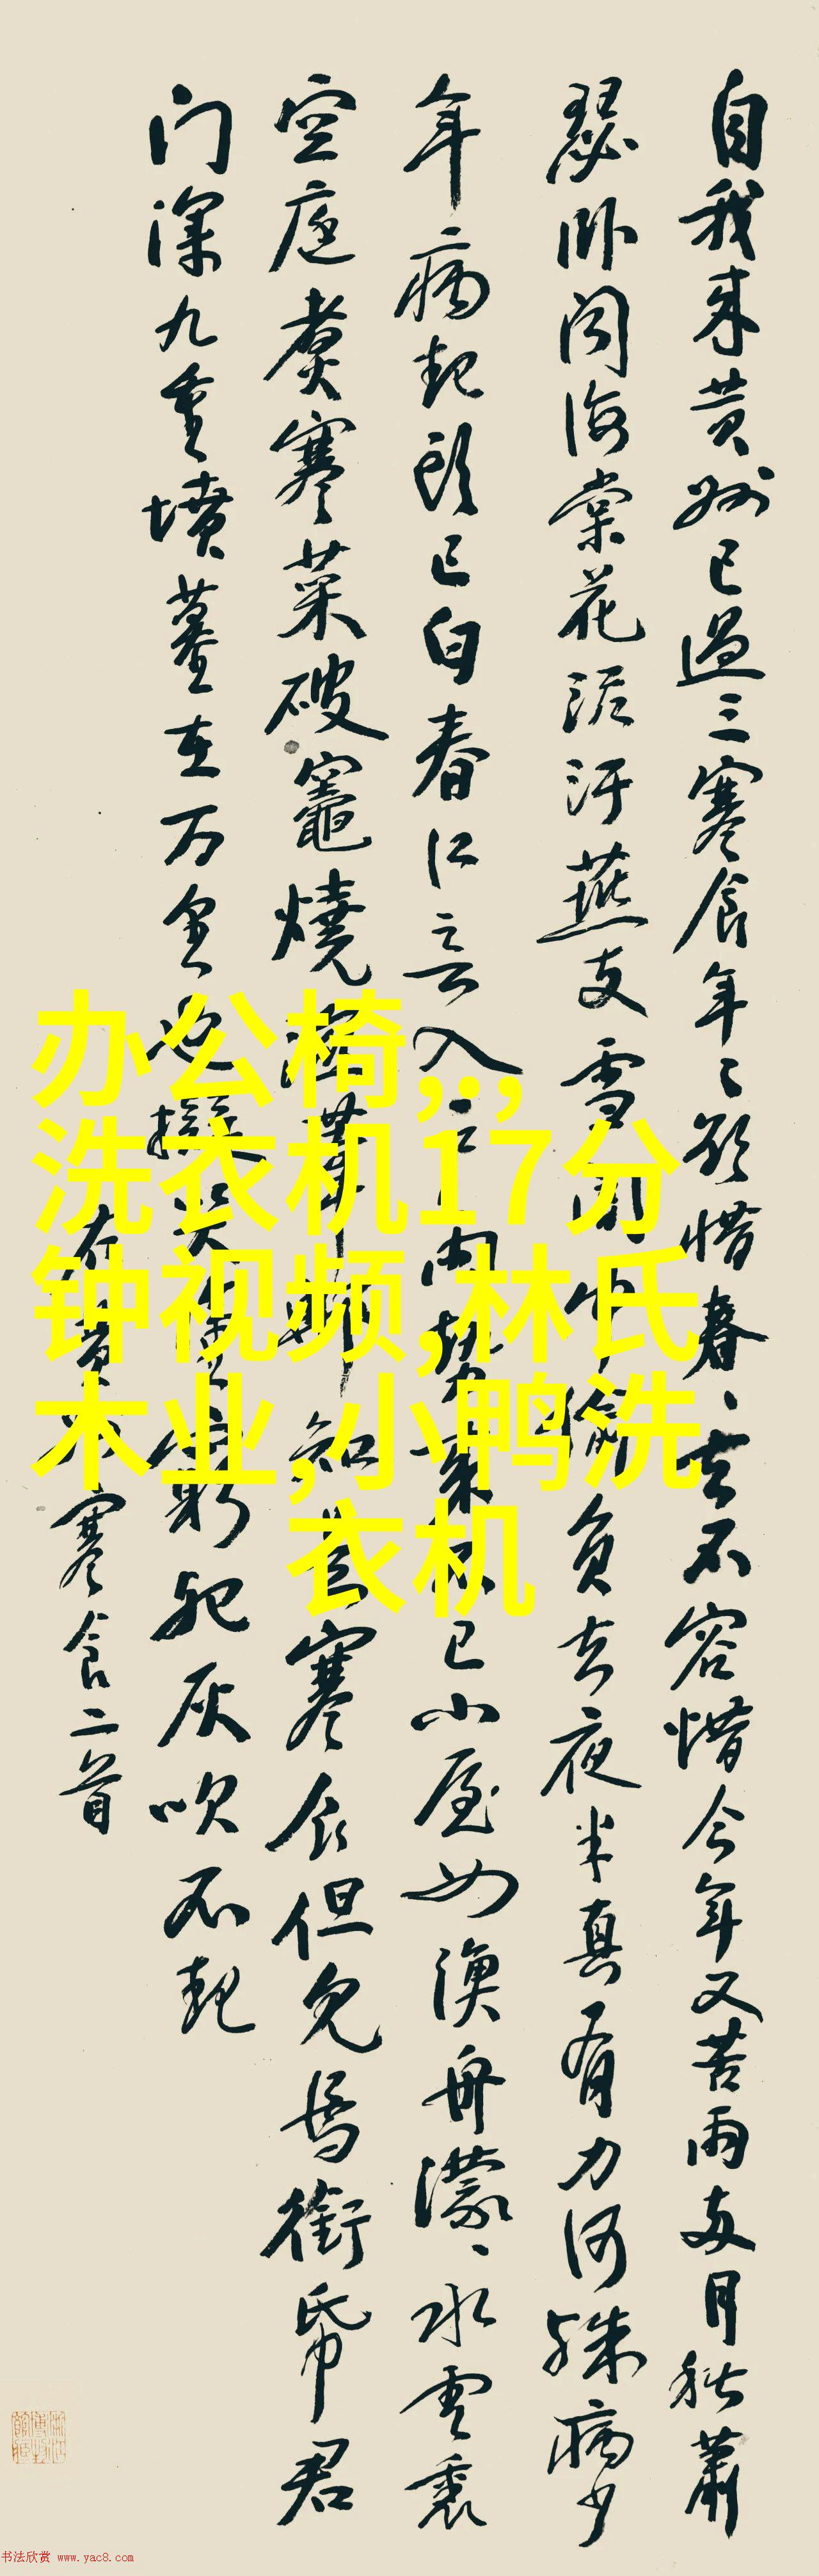 自我来黄州已過三寒食年〻欲惜春〻去不容惜今年又苦雨两月秋蕭
瑟卧闻海棠花泥汙燕支雪闇中偷負去夜半真有力何殊病少
年病起头已白春江入户雨势来不已小屋如渔舟濛〻水雲裏
空庖煮寒菜破竈燒湿苇那知是寒食但见乌銜帋君
门深九重墳墓在万里也拟哭塗窮死灰吹不起
右黄州寒食二首
办公椅,,,
洗衣机17分
钟视频,林氏
木业,小鸭洗
衣机
书法欣赏 www.yac8.com